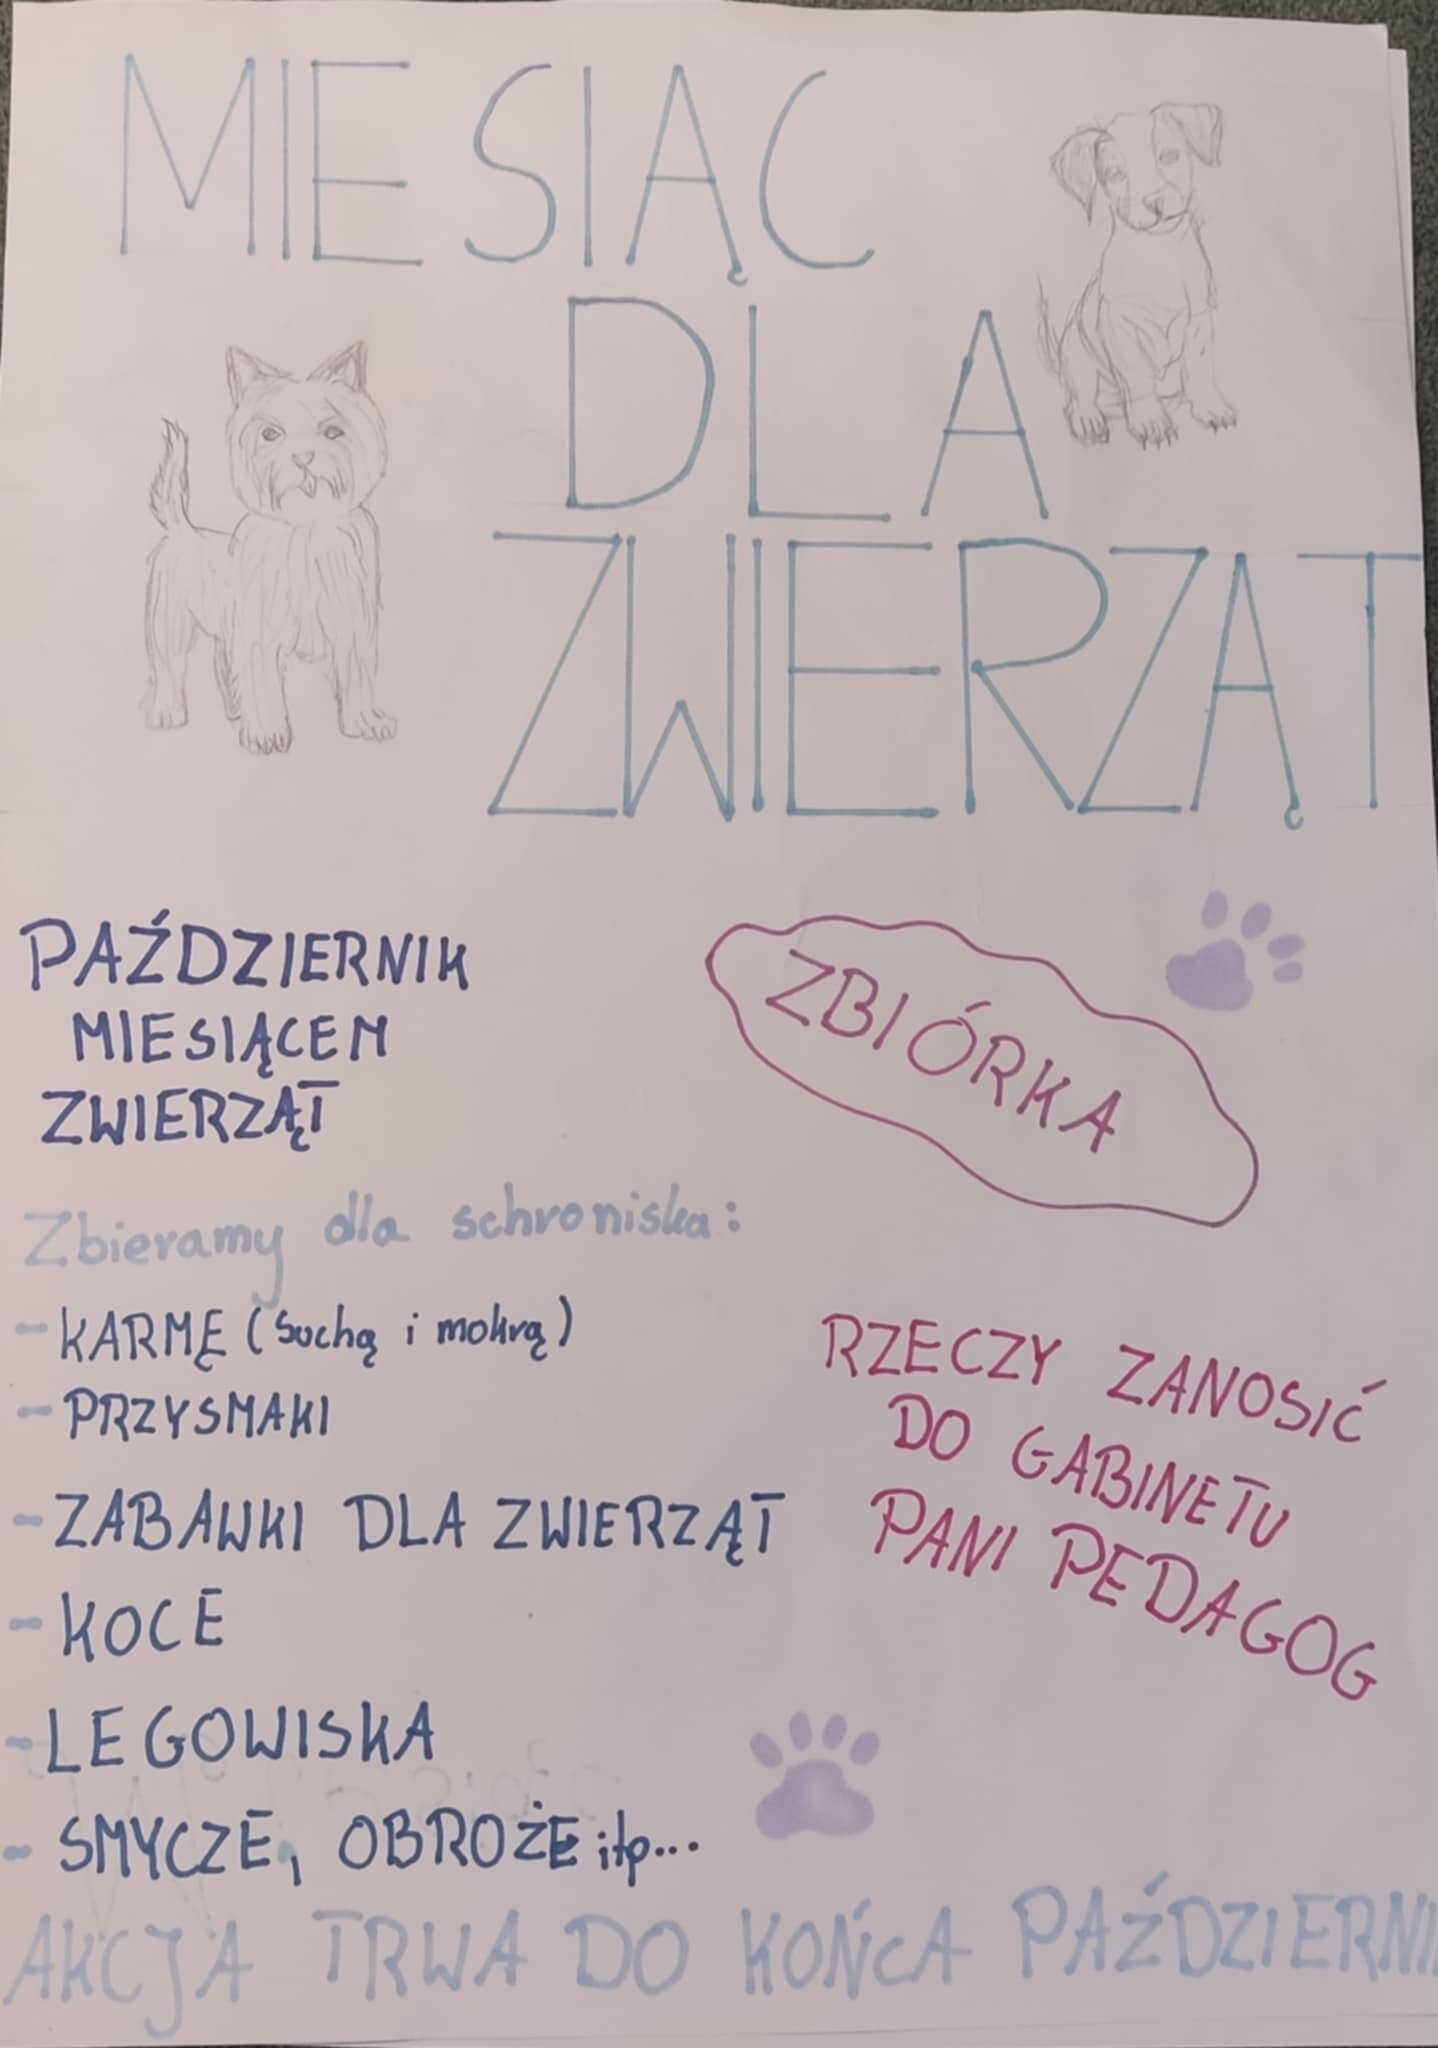 MIESIĄC
DLA
ZWIERZĄT
PAŹDZIERNIK
MIESIĄCEM
ZWIERZĄT
ZBIÓRKA
Zbieramy dla schroniska:
- KARMĘ (suchą i mokrą)
- PRZYSMAKI
- ZABAWKI DLA ZWIERZĄT
- KOCE
- LEGOWISKA
- SMYCZE, OBROŻE itp...
RZECZY ZANOSIĆ
DO GABINETU
PANI PEDAGOG
AKCJA TRWA DO KOŃCA PAŹDZIERNI